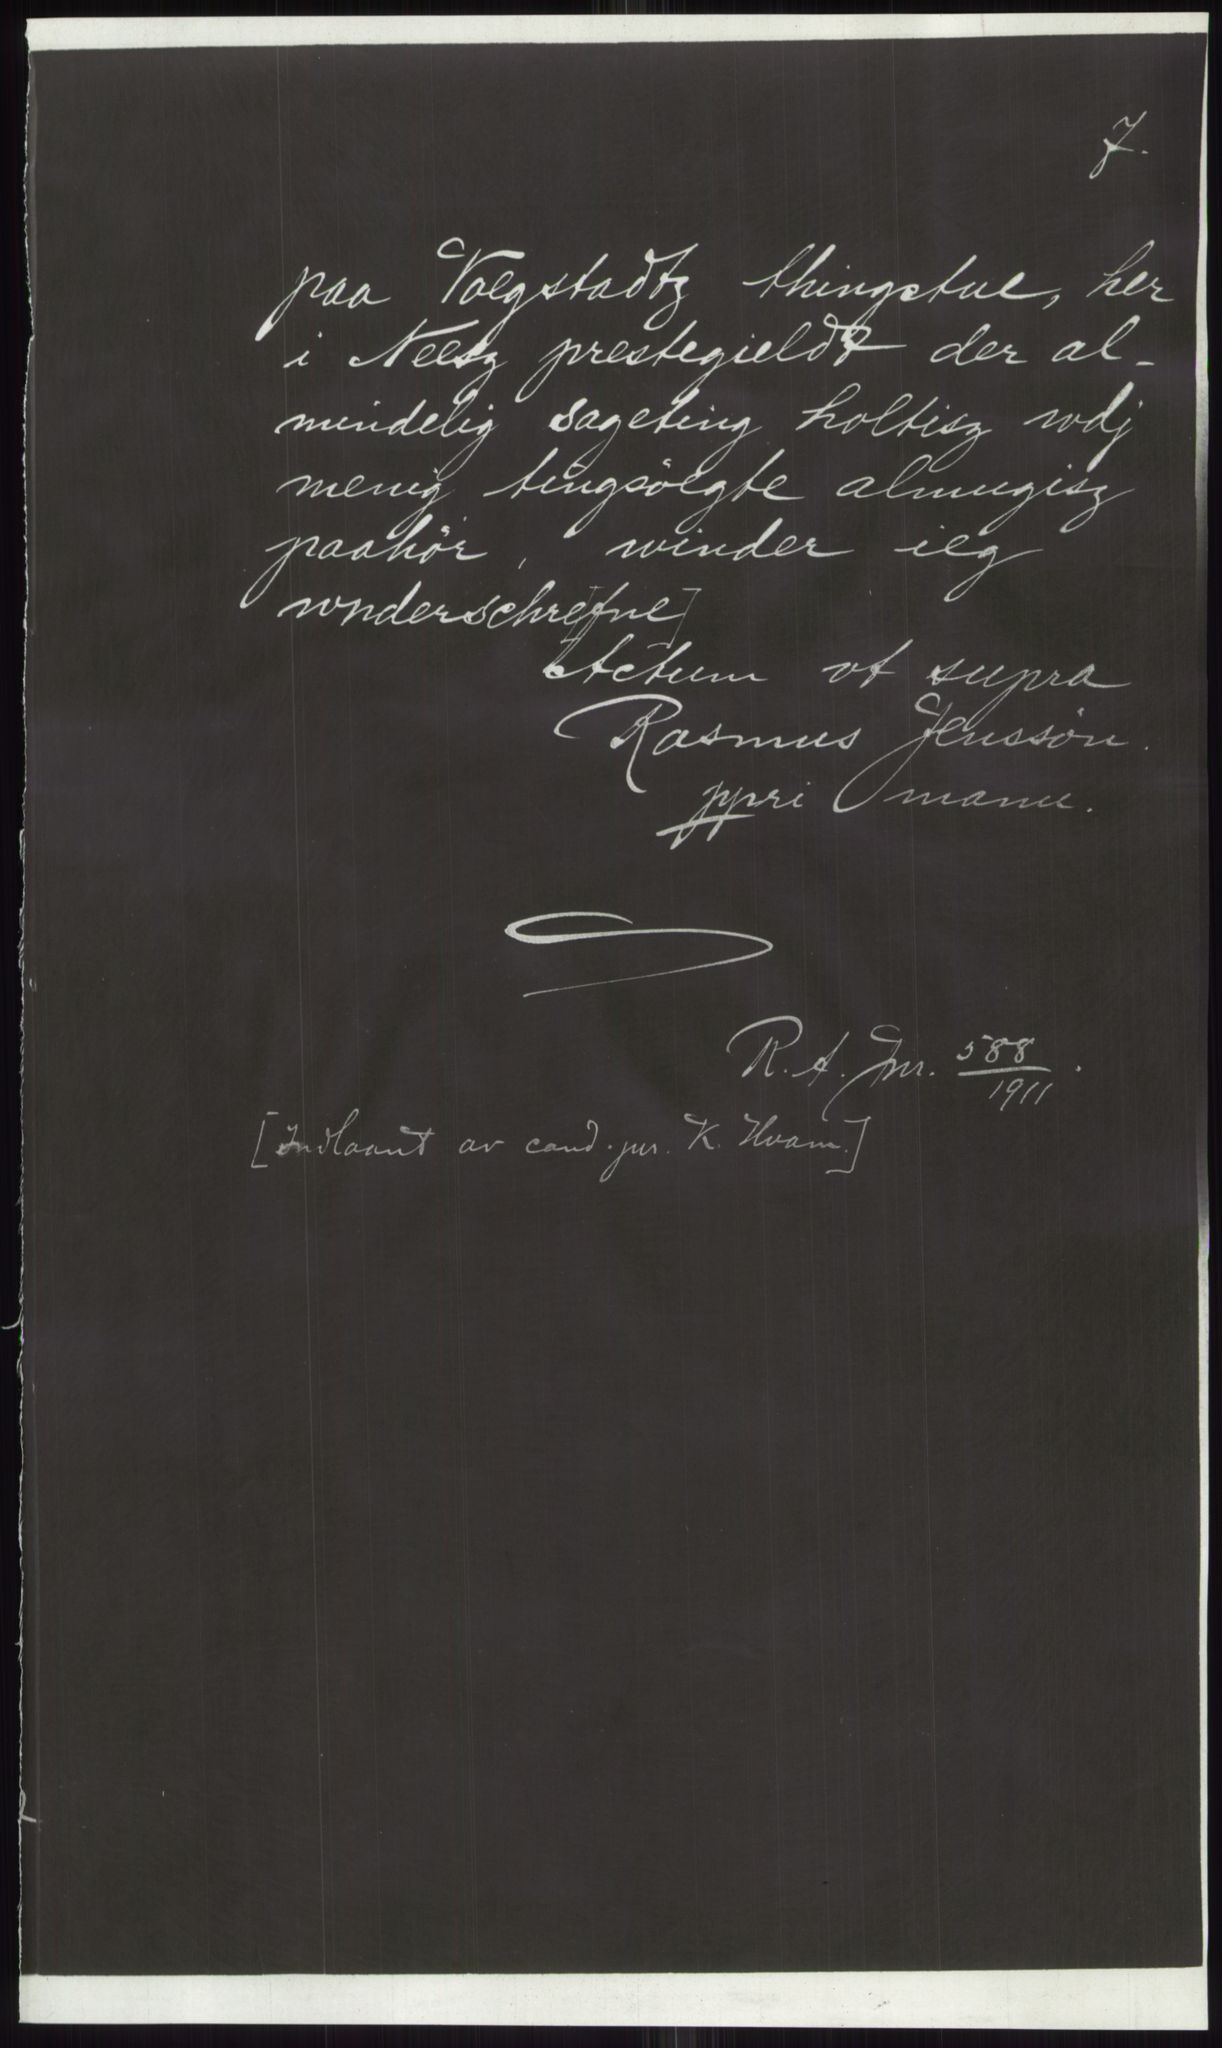 7.
paa Voegstadtz thingstue, her
i Neesz prestegieldt der al-
mindelig sageting holtisz wdj
menig tingsöegte almugisz
paahör, winder ieg
wnderschre[fne]
Actum vt supra
Rasmus Jenssön.
ppri manu.
R. A. Jnr. 588/1911.
[Indlaant av cand. jur. K. Hvam.]